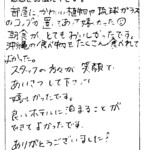 部屋に、かわいい植物や琉球ガラス
のコップが置いてあって嬉かった
朝食が とてもおいしかったです。
沖縄の食べ物もたくさん食べれて
よかった。
スタッフの方々が 笑顔で
あいさつして下さい
嬉しかったです。
良いホテルに泊まることが
できてよかったです。
ありがとうございました!